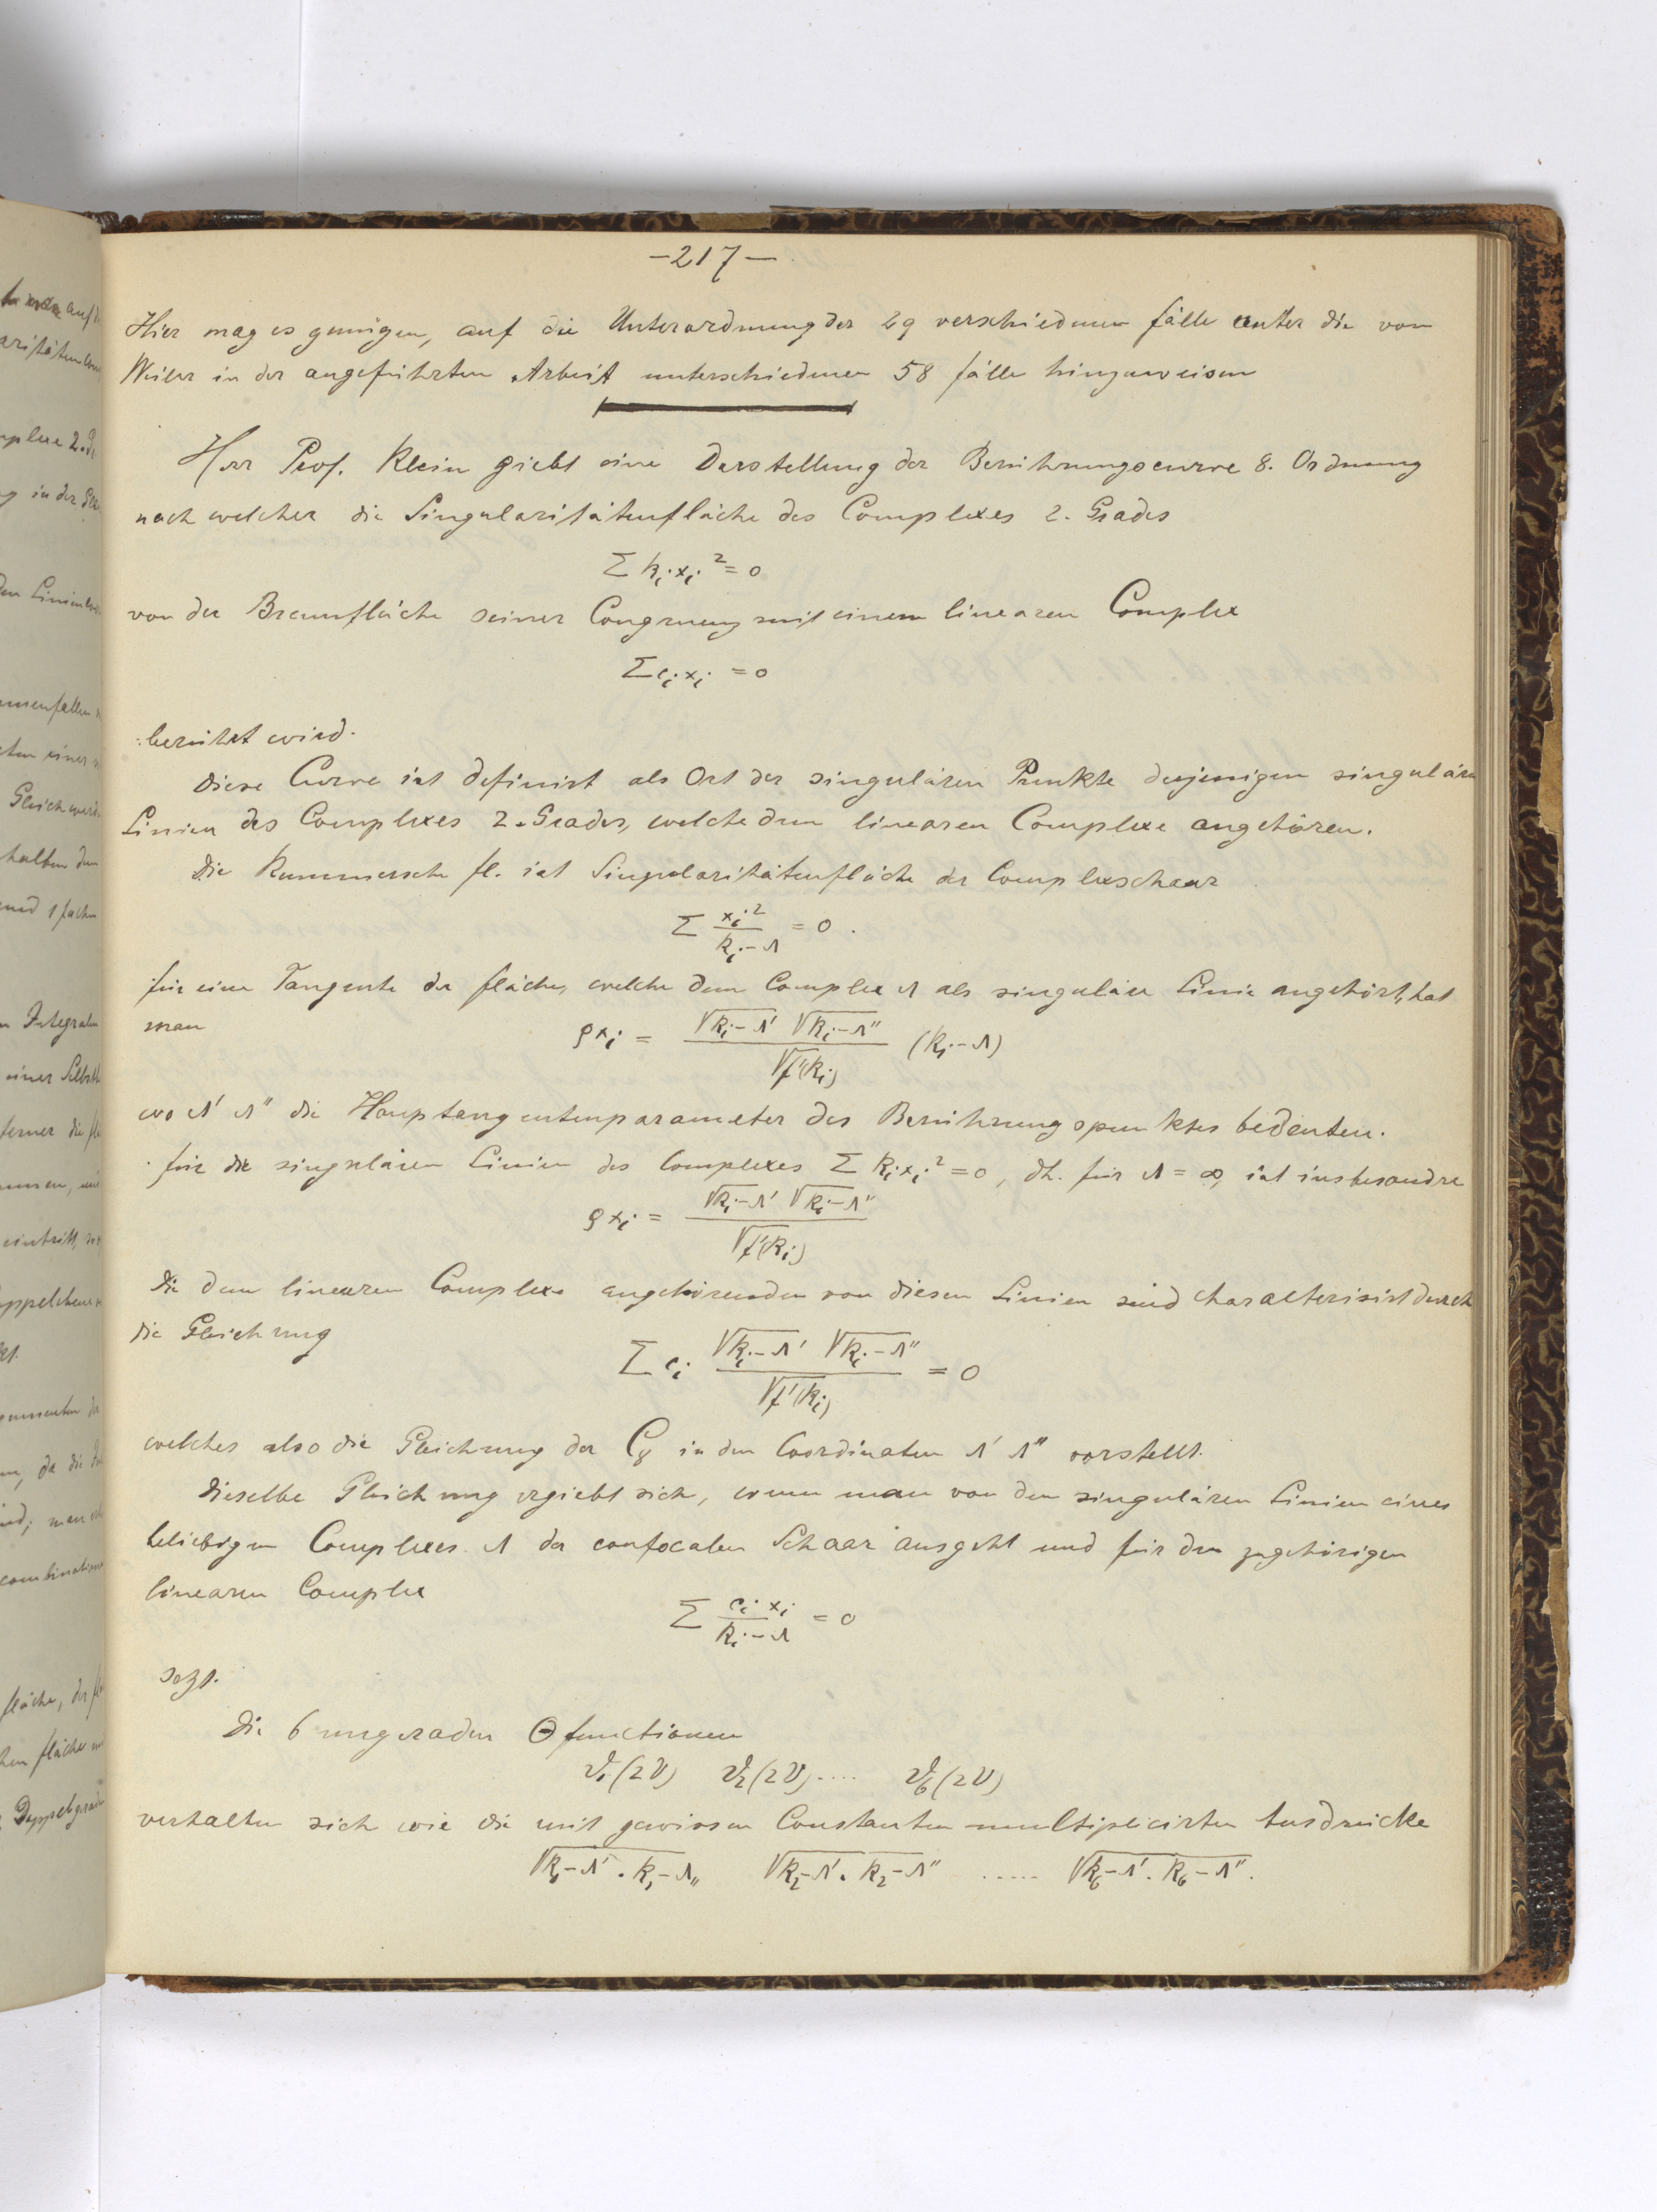 -217-
Hier mag es genügen, auf die Unterordnung der 29 verschiednen Fälle unter die von
Weiler in der angeführten Arbeit unterschiednen 58 Fälle hinzuweisen
Herr Prof. Klein giebt eine Darstellung der Berührungscurve 8. Ordnung
nach welcher die Singularitätenfläche des Complexes 2. Grades
Σ k_i x_i² = 0
von der Brennfläche seiner Congruenz mit einem linearen Complex
Σ c_i x_i = 0
berührt wird.
Diese Curve ist definirt als Ort der singulären Punkte derjenigen singulären
Linien des Complexes 2. Grades, welche dem linearen Complexe angehören.
Die Kummersche Fl. ist Singularitätenfläche der Complexschaar
Σ x_i² / (k_i - λ) = 0.
für eine Tangente der Fläche, welche dem Complex λ als singuläre Linie angehört, hat
man
ρx_i = √(k_i - λ') √(k_i - λ'') / √f'(k_i) (k_i - λ)
wo λ' λ'' die Haupttangentenparameter des Berührungspunktes bedeuten.
für die singulären Linien des Complexes Σ k_i x_i² = 0, dh. für λ = ∞, ist insbesondre
ρx_i = √(k_i - λ') √(k_i - λ'') / √f'(k_i)
Die dem linearen Complexe angehörenden von diesen Linien sind charakterisirt durch
die Gleichung
Σ c_i √(k_i - λ') √(k_i - λ'') / √f'(k_i) = 0
welches also die Gleichung der C_8 in den Coordinaten λ' λ'' vorstellt.
Dieselbe Gleichung ergiebt sich, wenn man von den singulären Linien eines
beliebigen Complexes λ der confocalen Schaar ausgeht und für den zugehörigen
linearen Complex
Σ c_i x_i / (k_i - λ) = 0
setzt.
Die 6 ungeraden Θfunctionen
ϑ_1(2v) ϑ_2(2v) .... ϑ_6(2v)
verhalten sich wie die mit gewissen Constanten multiplicirten Ausdrücke
√(k_1 - λ' . k_1 - λ_'') √(k_2 - λ' . k_2 - λ'') ..... √(k_6 - λ' . k_6 - λ'').